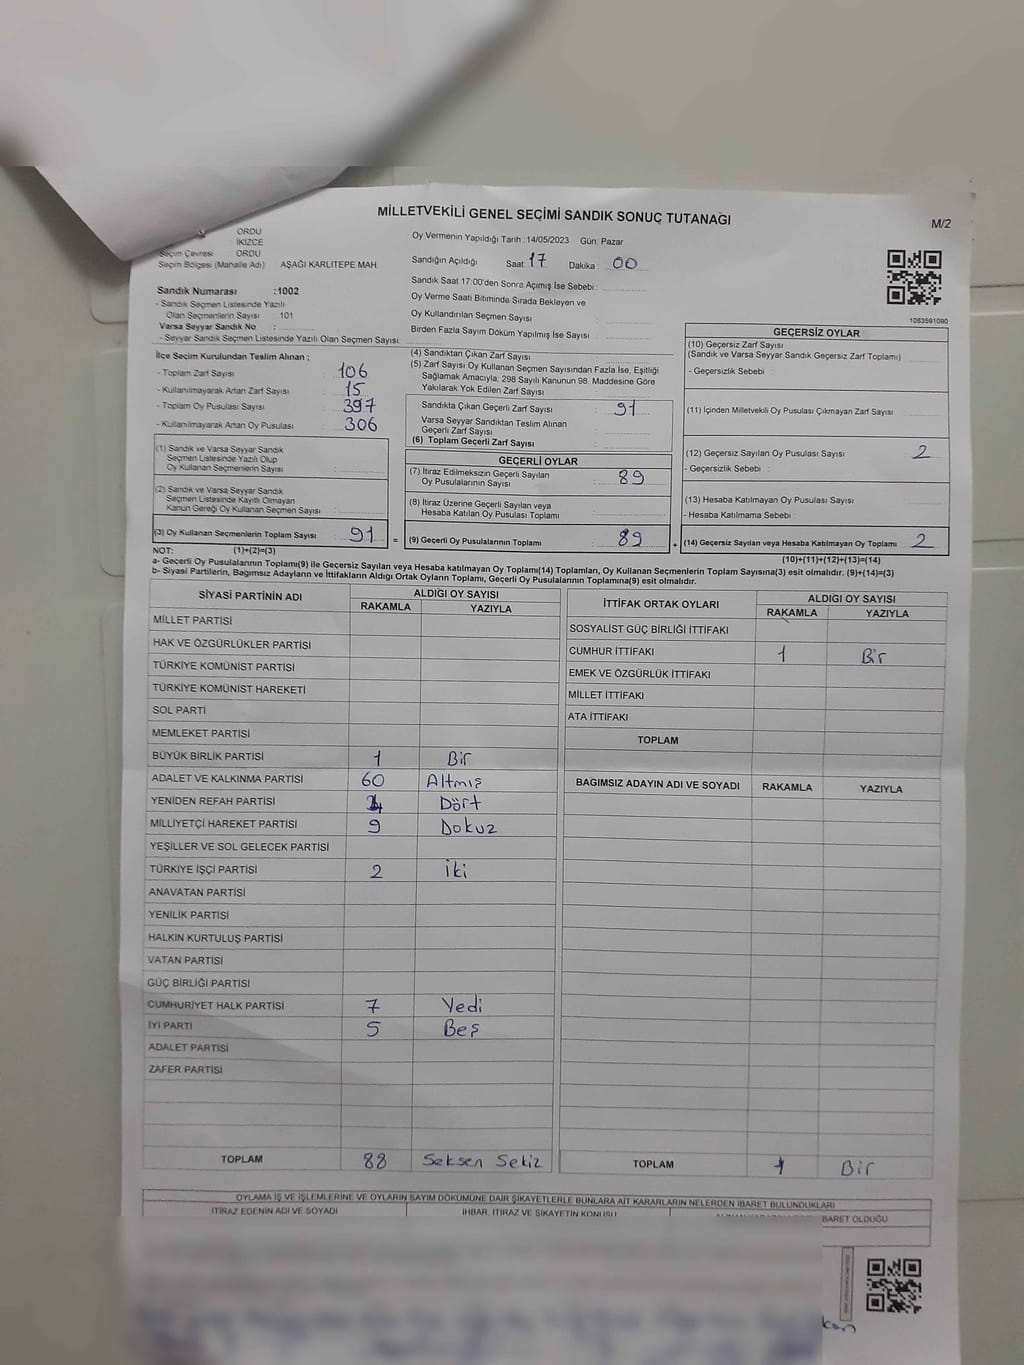 MİLLETVEKİLİ GENEL SEÇİMİ SANDIK SONUÇ TUTANAĞI
M/2
ORDU
İKİZCE
Seçim Çevresi ORDU
Seçim Bölgesi (Mahalle Adı) AŞAĞI KARLITEPE MAH.
Oy Vermenin Yapıldığı Tarih :14/05/2023 Gün: Pazar
Sandığın Açıldığı Saat 17 Dakika : 00
Sandık Saat 17:00'den Sonra Açımış İse Sebebi :
Oy Verme Saati Bitiminde Sırada Bekleyen ve
Oy Kullandırılan Seçmen Sayısı :
Birden Fazla Sayım Döküm Yapılmış İse Sayısı :
1083591090
Sandık Numarası :1002
- Sandık Seçmen Listesinde Yazılı
Olan Seçmenlerin Sayısı : 101
Varsa Seyyar Sandık No :
- Seyyar Sandık Seçmen Listesinde Yazılı Olan Seçmen Sayısı:
İlçe Seçim Kurulundan Teslim Alınan ;
- Toplam Zarf Sayısı : 106
- Kullanılmayarak Artan Zarf Sayısı : 15
- Toplam Oy Pusulası Sayısı : 397
- Kullanılmayarak Artan Oy Pusulası : 306
(1) Sandık ve Varsa Seyyar Sandık
Seçmen Listesinde Yazılı Olup
Oy Kullanan Seçmenlerin Sayısı :
(2) Sandık ve Varsa Seyyar Sandık
Seçmen Listesinde Kayıtlı Olmayan
Kanun Gereği Oy Kullanan Seçmen Sayısı :
(3) Oy Kullanan Seçmenlerin Toplam Sayısı : 91 =
(4) Sandıktan Çıkan Zarf Sayısı :
(5) Zarf Sayısı Oy Kullanan Seçmen Sayısından Fazla İse, Eşitliği
Sağlamak Amacıyla; 298 Sayılı Kanunun 98. Maddesine Göre
Yakılarak Yok Edilen Zarf Sayısı :
Sandıkta Çıkan Geçerli Zarf Sayısı : 91
Varsa Seyyar Sandıktan Teslim Alınan
Geçerli Zarf Sayısı :
(6) Toplam Geçerli Zarf Sayısı :
GEÇERLİ OYLAR
(7) İtiraz Edilmeksizin Geçerli Sayılan
Oy Pusulalarının Sayısı : 89
(8) İtiraz Üzerine Geçerli Sayılan veya
Hesaba Katılan Oy Pusulası Toplamı :
(9) Geçerli Oy Pusulalarının Toplamı : 89 +
GEÇERSİZ OYLAR
(10) Geçersiz Zarf Sayısı
(Sandık ve Varsa Seyyar Sandık Geçersiz Zarf Toplamı) :
- Geçersizlik Sebebi :
(11) İçinden Milletvekili Oy Pusulası Çıkmayan Zarf Sayısı :
(12) Geçersiz Sayılan Oy Pusulası Sayısı : 2
- Geçersizlik Sebebi :
(13) Hesaba Katılmayan Oy Pusulası Sayısı :
- Hesaba Katılmama Sebebi :
(14) Geçersiz Sayılan veya Hesaba Katılmayan Oy Toplamı : 2
NOT: (1)+(2)=(3)
(10)+(11)+(12)+(13)=(14)
a- Geçerli Oy Pusulalarının Toplamı(9) ile Geçersiz Sayılan veya Hesaba katılmayan Oy Toplamı(14) Toplamları, Oy Kullanan Seçmenlerin Toplam Sayısına(3) eşit olmalıdır. (9)+(14)=(3)
b- Siyasi Partilerin, Bagımsız Adayların ve İttifakların Aldığı Ortak Oyların Toplamı, Geçerli Oy Pusulalarının Toplamına(9) eşit olmalıdır.
SİYASİ PARTİNİN ADI ALDIĞI OY SAYISI
RAKAMLA YAZIYLA
MİLLET PARTİSİ
HAK VE ÖZGÜRLÜKLER PARTİSİ
TÜRKİYE KOMÜNİST PARTİSİ
TÜRKİYE KOMÜNİST HAREKETİ
SOL PARTİ
MEMLEKET PARTİSİ
BÜYÜK BİRLİK PARTİSİ 1 Bir
ADALET VE KALKINMA PARTİSİ 60 Altmış
YENİDEN REFAH PARTİSİ 4 Dört
MİLLİYETÇİ HAREKET PARTİSİ 9 Dokuz
YEŞİLLER VE SOL GELECEK PARTİSİ
TÜRKİYE İŞÇİ PARTİSİ 2 İki
ANAVATAN PARTİSİ
YENİLİK PARTİSİ
HALKIN KURTULUŞ PARTİSİ
VATAN PARTİSİ
GÜÇ BİRLİĞİ PARTİSİ
CUMHURİYET HALK PARTİSİ 7 Yedi
İYİ PARTİ 5 Beş
ADALET PARTİSİ
ZAFER PARTİSİ
TOPLAM 88 Seksen Sekiz
İTTİFAK ORTAK OYLARI ALDIĞI OY SAYISI
RAKAMLA YAZIYLA
SOSYALİST GÜÇ BİRLİĞİ İTTİFAKI
CUMHUR İTTİFAKI 1 Bir
EMEK VE ÖZGÜRLÜK İTTİFAKI
MİLLET İTTİFAKI
ATA İTTİFAKI
TOPLAM
BAGIMSIZ ADAYIN ADI VE SOYADI RAKAMLA YAZIYLA
TOPLAM 1 Bir
OYLAMA İŞ VE İŞLEMLERİNE VE OYLARIN SAYIM DÖKÜMÜNE DAİR ŞİKAYETLERLE BUNLARA AİT KARARLARIN NELERDEN İBARET BULUNDUKLARI
İTİRAZ EDENİN ADI VE SOYADI İHBAR, İTİRAZ VE ŞİKAYETİN KONUSU BARET OLDUĞU